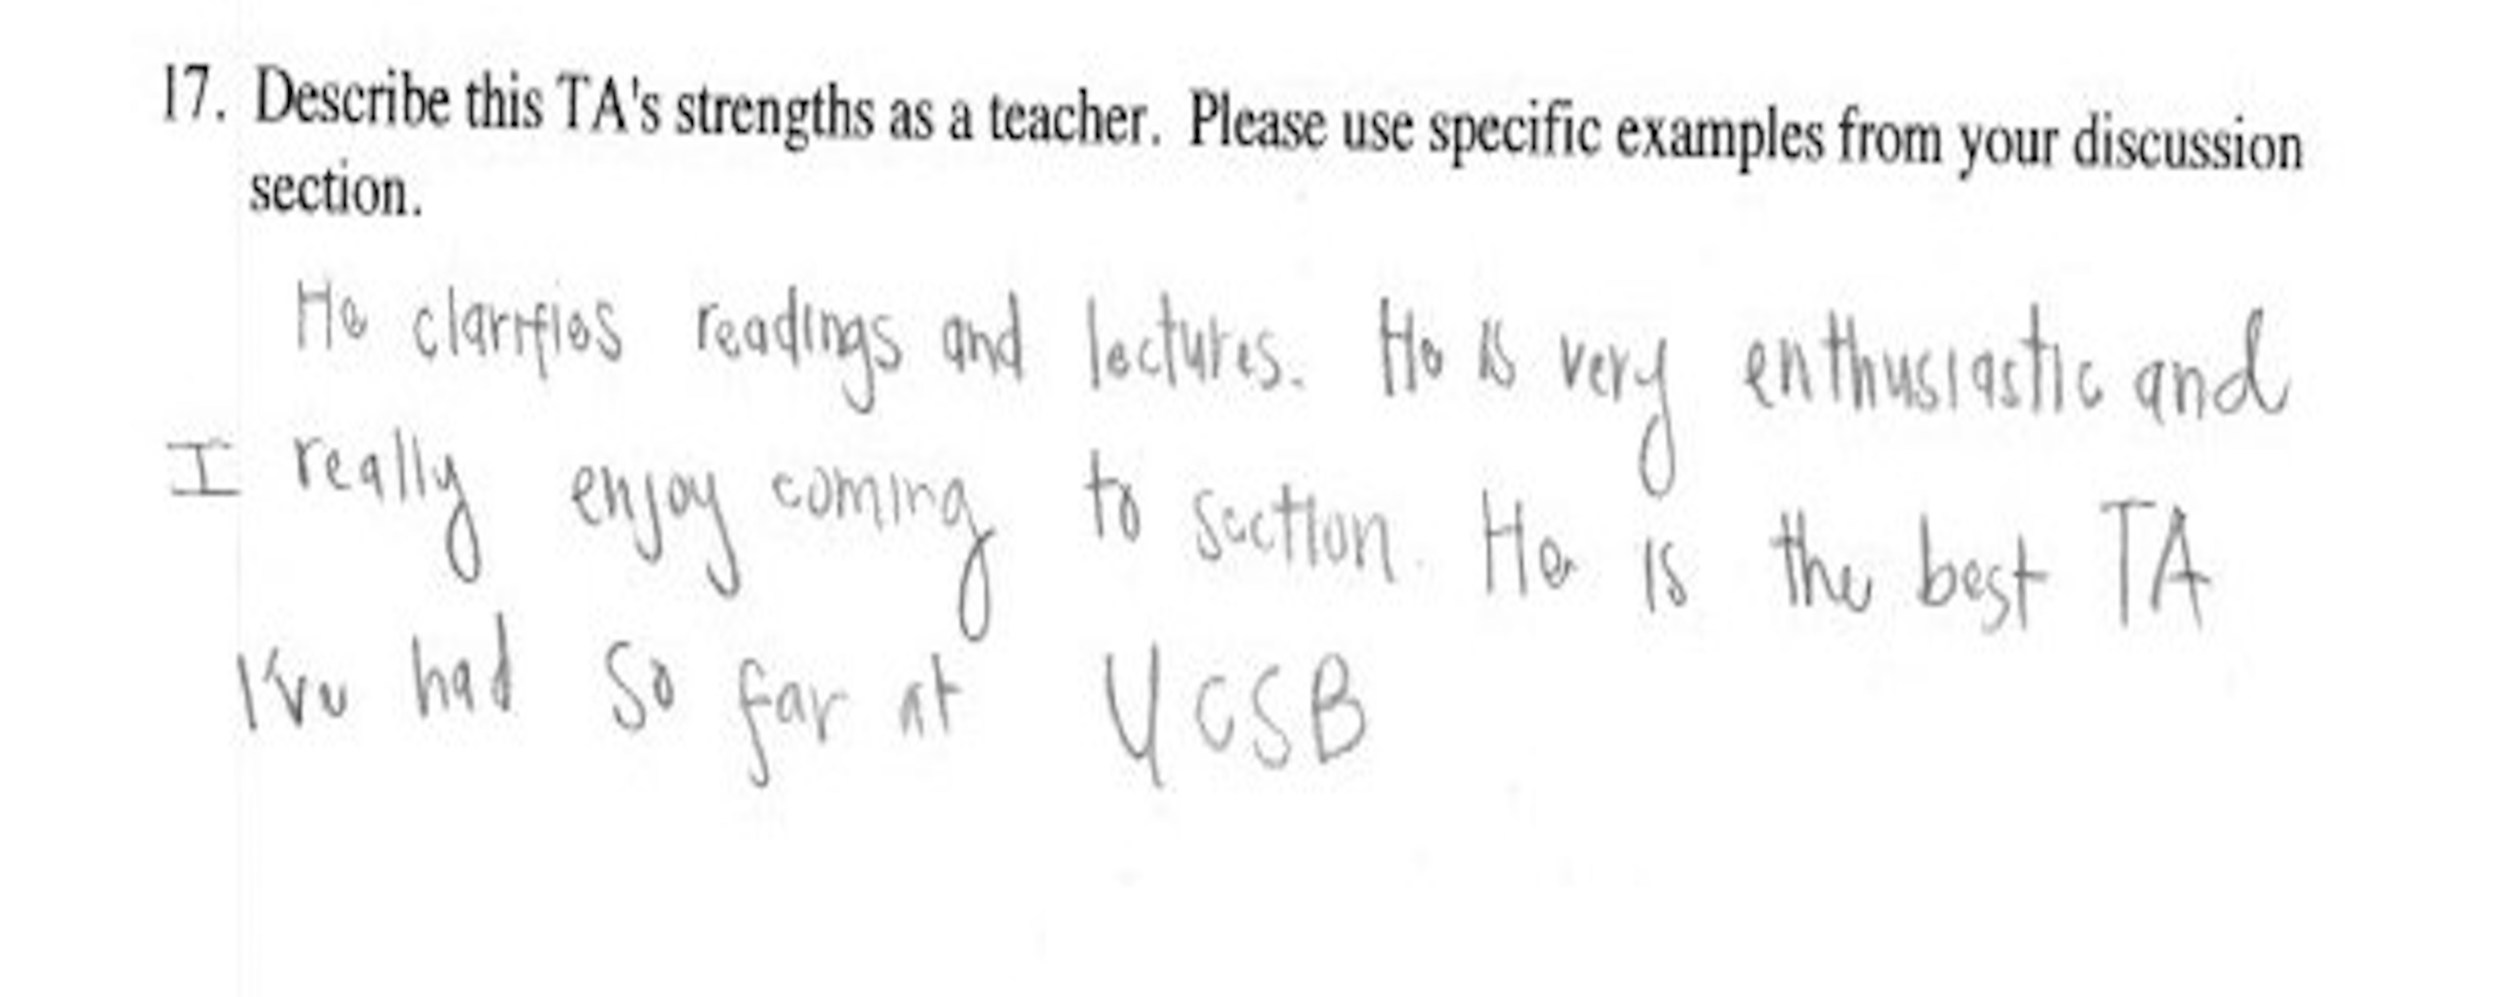 17. Describe this TA's strengths as a teacher. Please use specific examples from your discussion
section.
He clarifies readings and lectures. He is very enthusiastic and
I really enjoy coming to section. He is the best TA
I've had so far at UCSB